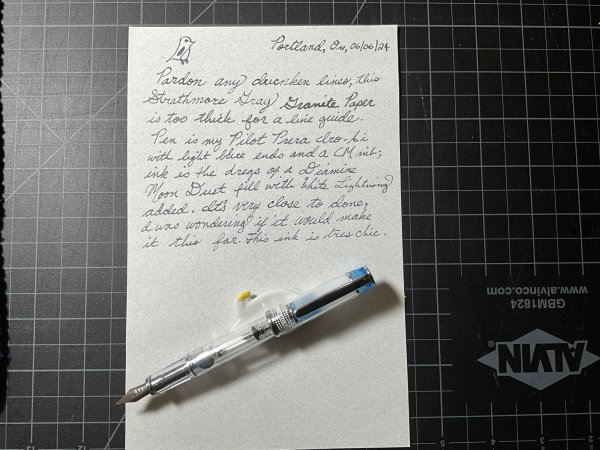 Portland, Or, 06/06/24
Pardon any duicnken lines, this
Strathmore Gray Granite Paper
is too thick for a line guide.
Pen is my Pilot Prera clro-ki
with light blue ends and a CM nib;
ink is the dregs of a Diamine
Moon Dust fill with White Lightning
added. It's very close to done,
I was wondering if it would make
it this far. This ink is tres chic.
GBM1824
www.alvinco.com
ALVIN
13
12